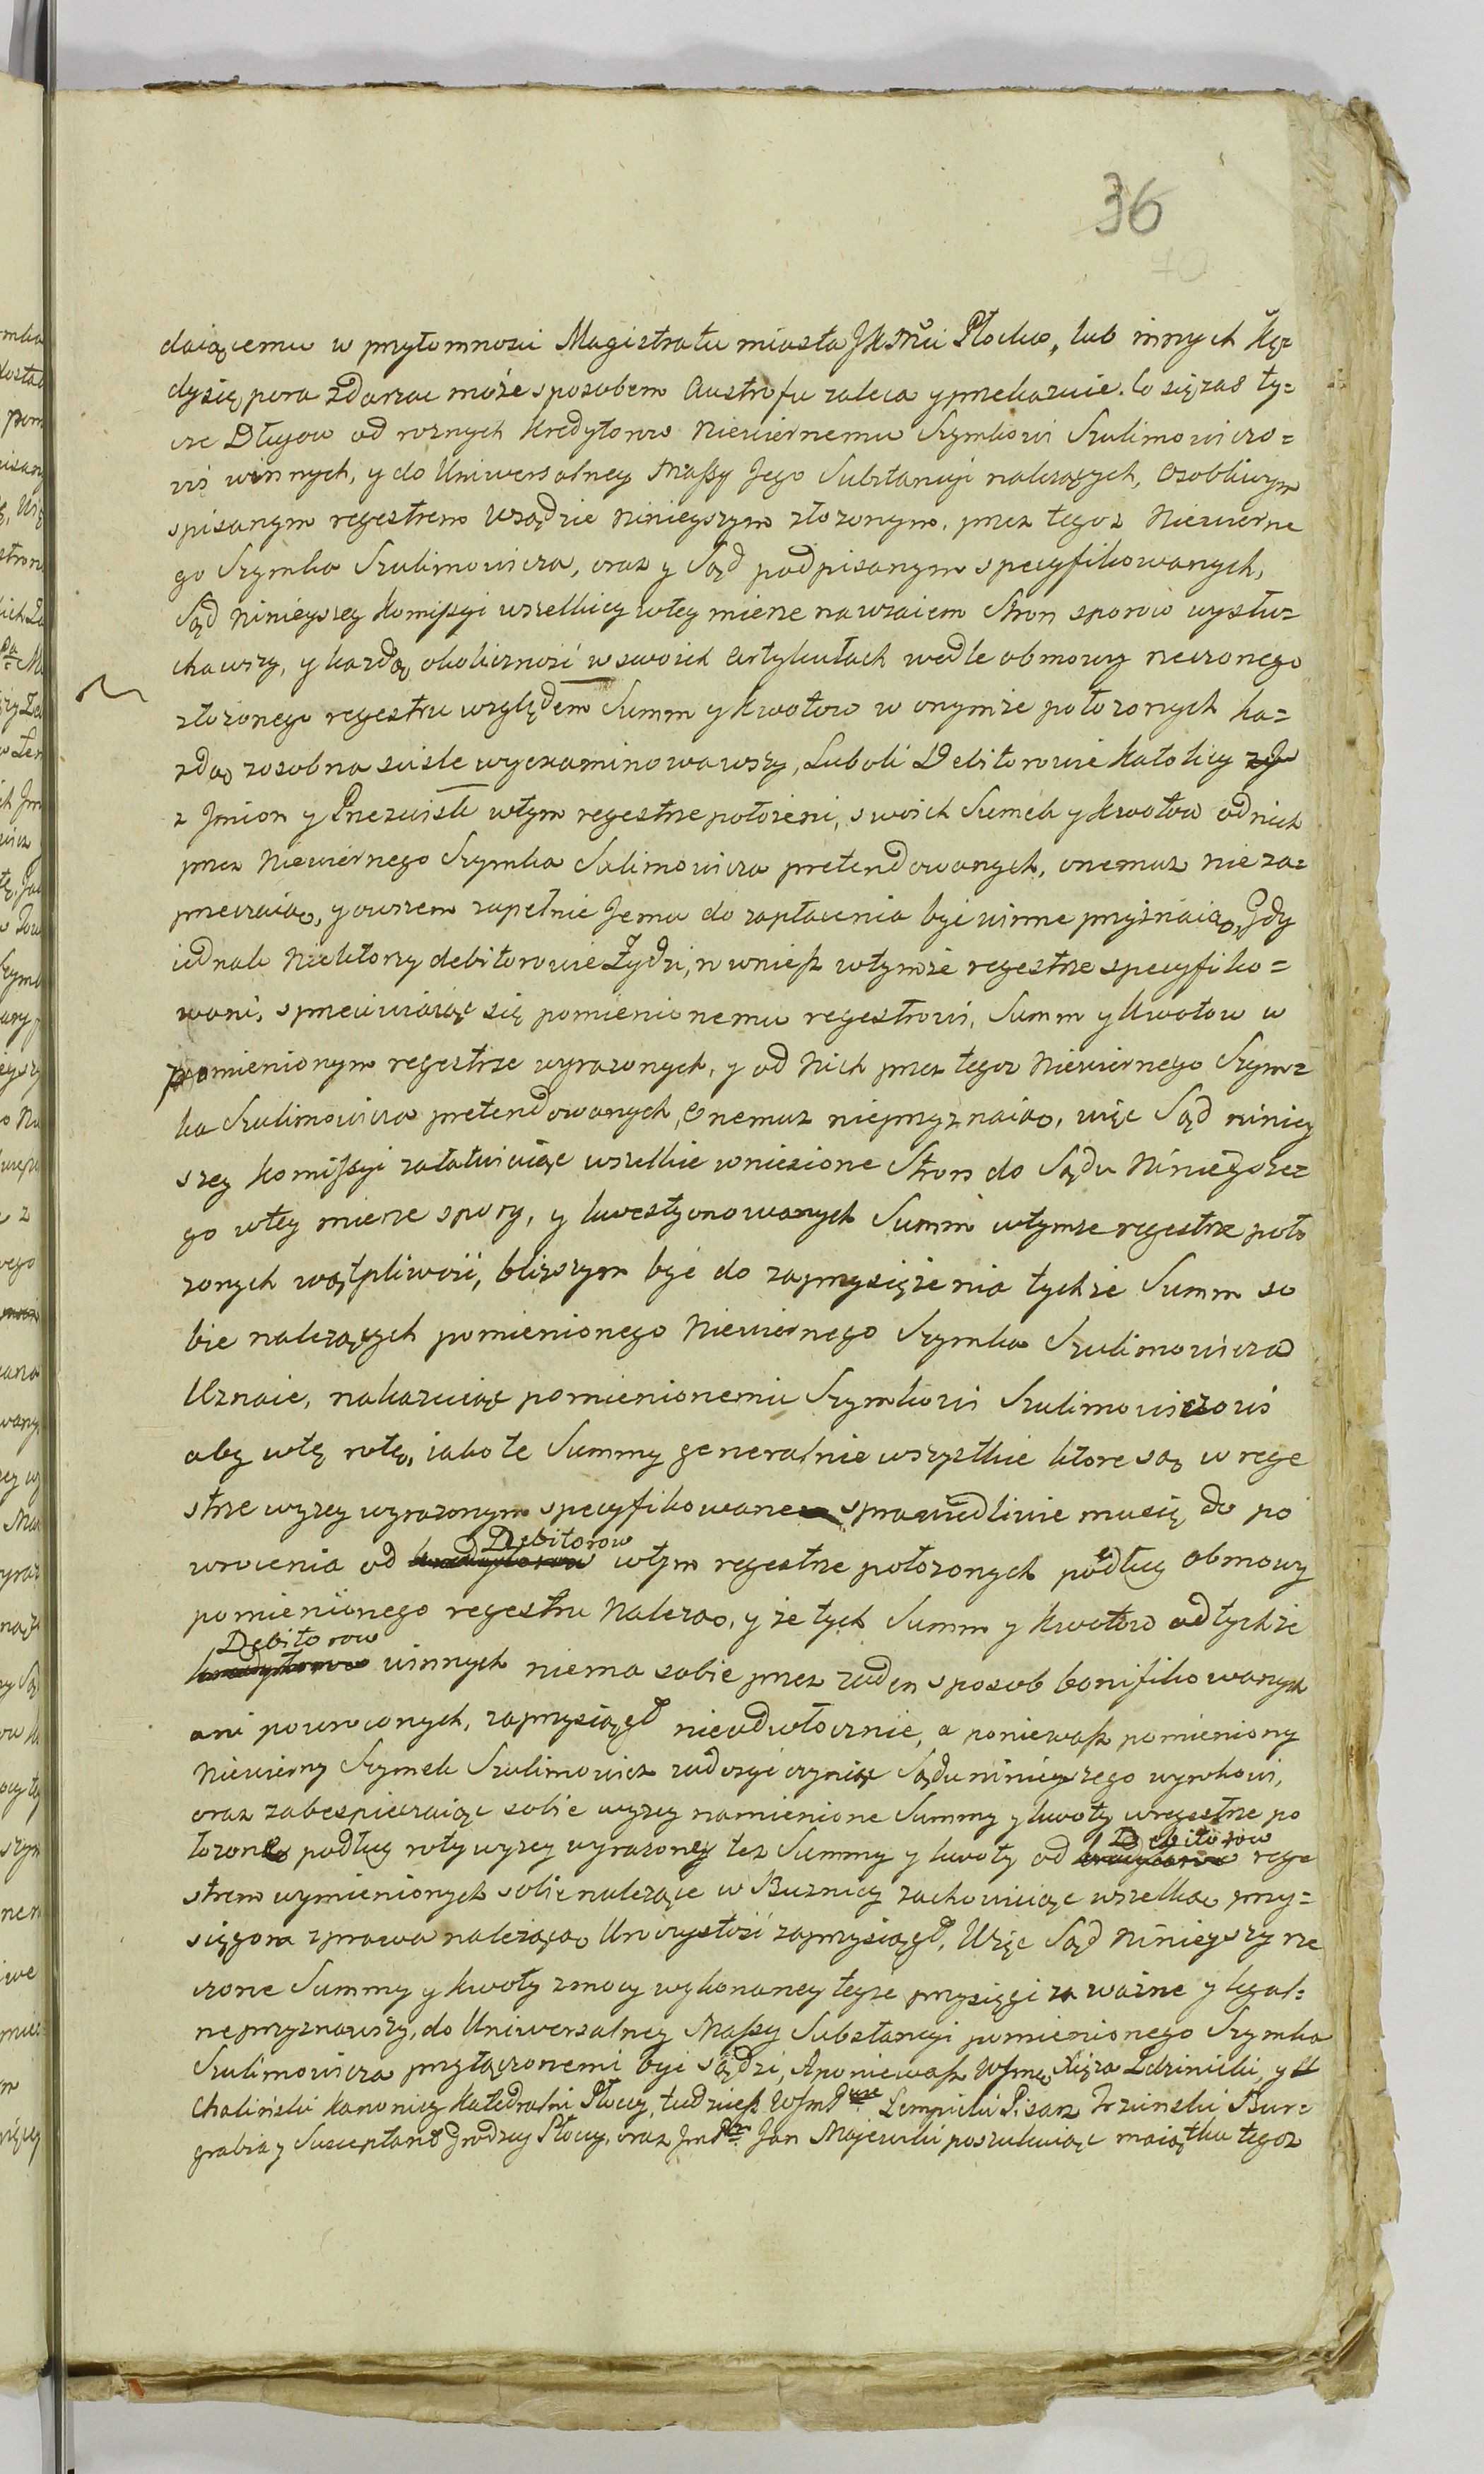 36
40
daiącemu w przytomnosci Magistratu miasta JKMci Płocka, lub innych Kę=
dy się pora zdarzac może sposobem Austrofu zaleca y przekazuie. Co się zas ty=
cze Długow od roznych Kredytorow Niewiernemu Szymkowi Szulimowiczo=
wi winnych, y do Uniwersalney Massy Jego Substancyi nalezących, Osobliwym
spisanym regestrem w Sądzie Ninieyszym złozonym, przez tegoz Niewierne
go Szymka Szulimowicza, oraz y Sąd podpisanym specyfikowanych,
Sąd Ninieyszey Komissyi wszelkiey wtey mierze nawzaiem Stron sporow wysłu=
chawszy, y kazdą okolicznosć w swoich Artykułach wedle obmowy rzeczonego
złozonego regestru względem Summ y kwotow w onymze połozonych ka=
zdą zosobna scisle wyexaminowawszy, Luboli Debitorowie Katolicy
z Jmion y Przezwisk wtym regestrze połozeni, swoich Summ y kwotow od nich
przez Niewiernego Szymka Sulimowicza pretendowanych, onemuz nie za=
przeczaią, y owszem zupełnie Jemu do zapłacenia być winne przyznaią, Gdy
iednak Niektorzy debitorowie Żydzi, rowniesz wtymże regestrze specyfiko=
wani, sprzeciwiaiąc się pomienionemu regestrowi, Summ y Kwotow w
pomienionym regestrze wyrazonych, y od Nich przez tegoz Niewiernego Szym=
ka Szulimowicza pretendowanych, Onemuz nieprzyznaią, więc Sąd niniey
szey Komissyi załatwiaiąc wszelkie wniesione Stron do Sądu Ninieysze=
go wtey mierze spory, y kwestyonowanych Summ wtymze regestrze poło
zonych wątpliwość, bliższym być do zaprzysiężenia tychże Summ so
bie nalezących pomienionego Niewiernego Szymka Szulimowicza
Uznaie, nakazuiąc pomienionemu Szymkowi Szulimowiczowi
aby wtę rotę, iako te Summy generalnie wszystkie ktore są w rege
strze wyzey wyrazonym specyfikowane sprawiedliwie mu się do po
wrocenia od Debitorow wtym regestrze połozonych podług obmowy
pomienionego regestru Nalezą, y ze tych Summ y Kwotow od tychże
Debitorow winnych niema sobie przez zaden sposob bonifikowanych
ani powroconych, zaprzysiągł nieodwłocznie, a poniewasz pomieniony
Niewierny Szymek Szulimowicz zadosyć czyniąc Sądu ninieyszego wyrokowi,
oraz zabespieczaiąc sobie wyzey namienione Summy y kwoty wregestrze po
łozone podług roty wyzey wyrazoney tez Summy y kwoty od Debitorow rege
strem wymienionych sobie nalezące w Buznicy zachowuiąc wszelką przy=
sięgom z prawa nalezącą Uroczystość zaprzysiągł, Więc Sąd Ninieyszy rze
czone Summy y kwoty zmocy wykonaney teyze przysięgi za ważne y legal=
ne przyznawszy, do Uniwersalney Massy Substancyi pomienionego Szymka
Szulimowicza przyłączonemi być sądzi, A poniewasz Xięża Zdziniccki, y
Chaliński Kanonicy Katedralni Płoccy, tudziesz Lempicki Pisarz Trzinski Bur=
grabia y Susceptant Grodzcy Płoccy, oraz Jan Majewski poszukuiąc maiątku tegoz